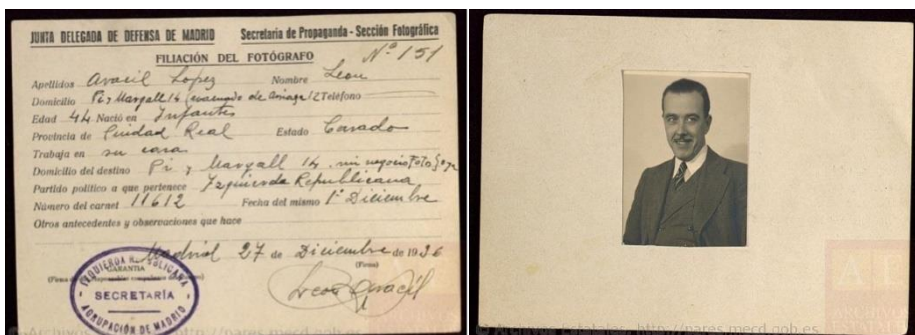 JUNTA DELEGADA DE DEFENSA DE MADRID Secretaria de Propaganda - Sección Fotográfica
Nº 151
FILIACIÓN DEL FOTÓGRAFO
Apellidos Aracil Lopez Nombre Leon
Domicilio Pi y Margall 14 (evacuado de Arriaga 12 Teléfono
Edad 44 Nació en Infantes
Provincia de Ciudad Real Estado Casado
Trabaja en su casa
Domicilio del destino Pi y Margall 14 mi negocio Foto Goya
Partido político a que pertenece Izquierda Republicana
Número del carnet 11612 Fecha del mismo 1º Diciembre
Otros antecedentes y observaciones que hace
Madrid 27 de Diciembre de 1936
GARANTIA (Firma)
IZQUIERDA REPUBLICANA
SECRETARÍA
AGRUPACIÓN DE MADRID
Leon Aracil
ARCHIVOS
ESTATALES
© Archivos Estatales, http://pares.mecd.gob.es